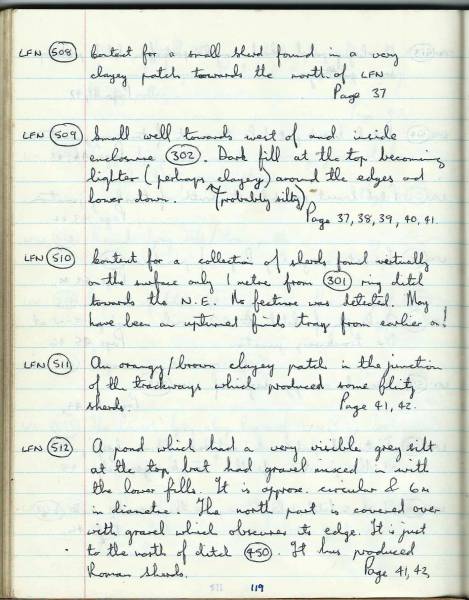 LFN 508 Context for a small sherd found in a very
clayey patch towards the north of LFN
Page 37
LFN 509 Small well towards west of and inside
enclosure 302. Dark fill at the top becoming
lighter (perhaps clayey) around the edges and
lower down. (probably silty)
Page 37, 38, 39, 40, 41.
LFN 510 Context for a collection of sherds found vertically
on the surface only 1 metre from 301 ring ditch
towards the N.E. No feature was detected. May
have been an upturned finds tray from earlier on!
LFN 511 An orangy/brown clayey patch in the junction
of the trackways which produced some flinty
sherds. Page 41, 42.
LFN 512 A pond which had a very visible grey silt
at the top but had gravel mixed in with
the lower fills. It is approx. circular & 6m
in diameter. The north part is covered over
with gravel which obscures its edge. It is just
to the north of ditch 450. It has produced
Roman sherds. Page 41, 42,
119